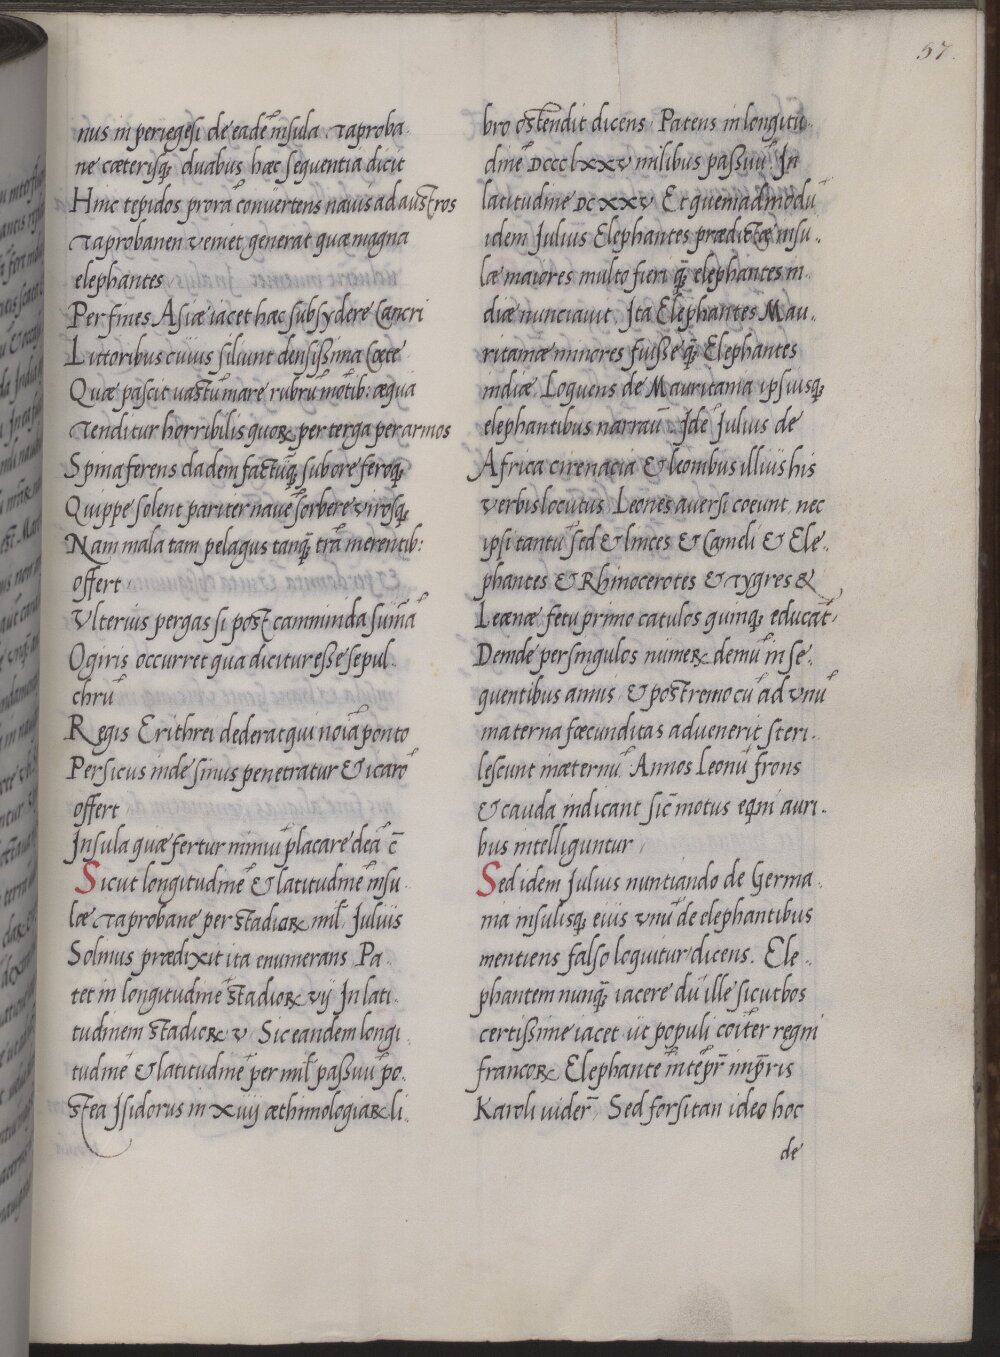 57.
nus in periegesi de eadē insula Taproba.
ne cæterisq; duabus hæc sequentia dicit
Hinc tepidos prorā convertens navis ad austros
Taprobanen veniet generat quæ magna
elephantes
Per fines Asiæ iacet hæc sub sydere Cancri
Littoribus cuius siliunt densissima Cœte
Quæ pascit vastū mare rubrū mōtib: æqua
Tenditur horribilis quoꝝ per terga per armos
Spina ferens cladem factūq; sub ore feroq;
Quippe solent pariter navē sorbere virosq;
Nam mala tam pelagus tanq̄ trā merentib:
offert.
Vlterius pergas si post camminida sūmā
Ogiris occurret qua dicitur esse sepul.
chrū
Regis Erithrei dederat qui noīa ponto
Persicus inde sinus penetratur & icarō
offert
Insula quæ fertur nimiū placare deā c̄
Sicut longitudinē & latitudinē insu.
læ Taprobane per stadioꝝ mil̄ Juliis
Solinus prædixit ita enumerans Pa.
tet in longitudinē stadioꝝ vij In lati.
tudinem stadioꝝ v Sic eandem longi
tudinē & latitudinē per mil̄ passuū po.
stea Isidorus in xiiij æthimologiaꝝ li.
bro ostendit dicens Patens in longitu.
dinē DCCClxxv milibus passuū In
latitudine DCxxv Et quemadmodū
idem Julius Elephantes prædictæ insu.
læ maiores multo fieri q̄ elephantes in
diæ nunciavit. Ita Elephantes Mau.
ritaniæ minores fuisse q̄ Elephantes
indiæ Loquens de Mauritania ipsiusq;
elephantibus narrau᷈ Idē Julius de
Africa cirenacia & leonibus illius his
verbis locutus Leones aversi coeunt, nec
ipsi tantū sed & linces & Cameli & Ele.
phantes & Rhinocerotes & Tygres &
Leænæ fetu primo catulos quinq; educāt,
Deinde per singulos numeꝝ demū in se.
quentibus annis & postremo cū ad vnū
materna fœcunditas advenerit, steri.
lescunt in æternū Annos Leonū frons
& cauda indicant sic̄ motus eqni auri.
bus intelliguntur.
Sed idem Julius nuntiando de Germa.
nia insulisq; eiüs vnū de elephantibus
mentiens falso loquitur dicens. Ele.
phantem nunq̄ iacere dū ille sicut bos
certissime iacet üt populi coīter regni
francoꝝ Elephantē intēpr̄ imp̄ris
Karoli vider̄ Sed forsitan ideo hoc
de